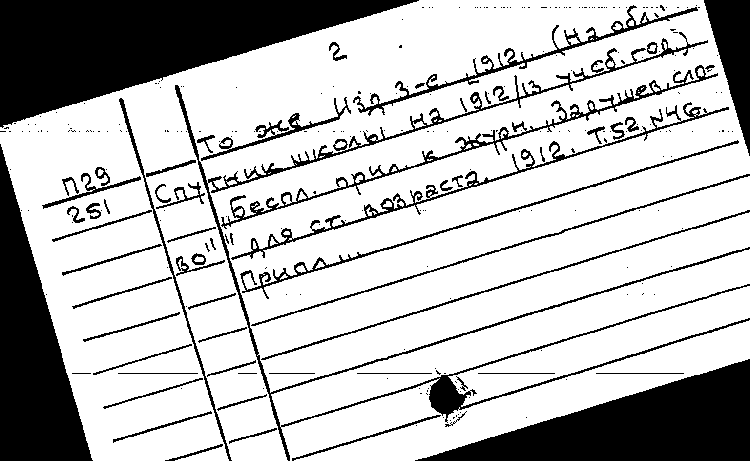 2
То же. Изд 3-е [1912]. (На обл.:
П29 Спутник школы на 1912/13 учеб. год)
251 „Беспл. прил. к журн. „Задушев. сло-
во" для ст. возраста. 1912. Т.52, №46.
Припл...